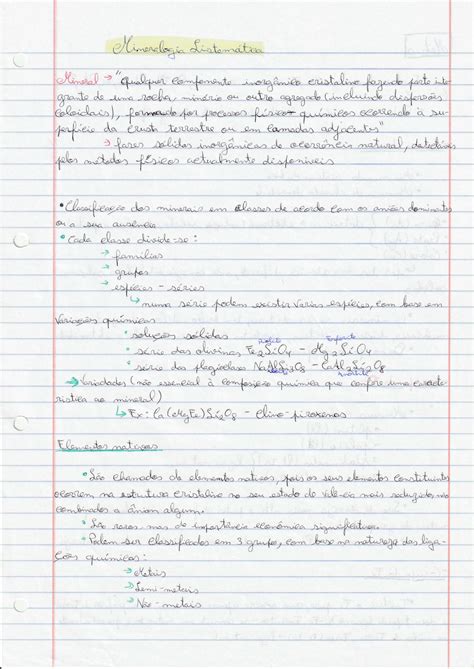 Mineralogia Sistemática
Mineral → "qualquer componente inorgânico cristalino fazendo parte inte
grante de uma rocha, minério ou outro agregado (incluindo dispersões
coloidais), formado por processos físico-químicos ocorrendo a su-
perfície da crusta terrestre ou em camadas adjacentes"
→ fases sólidas inorgânicas de ocorrência natural, detectáveis
pelos métodos físicos actualmente disponíveis
• Classificação dos minerais em classes de acordo com os aniões dominantes
ou a sua ausência
• Cada classe divide-se:
→ famílias
→ grupos
→ espécies - séries
↳ numa série podem existir várias espécies, com base em
variações químicas
• soluções sólidas
• série das olivinas Fe2SiO4 - Mg2SiO4
• série da plagioclase NaAlSi3O8 - CaAl2Si2O8
→ Variedades (não essencial à composição química que confere uma caracte
ristica ao mineral)
↳ Ex: Ca(MgFe)Si2O8 - Clino-piroxenos
Elementos nativos
• São chamados de elementos nativos, pois os seus elementos constituintes
ocorrem na estrutura cristalina no seu estado de valência mais reduzido, não
combinados a ânion algum.
• São raros mas de importância económica significativa.
• Podem ser classificados em 3 grupos, com base na natureza das liga-
ções químicas:
→ Metais
→ Semi-metais
→ Não-metais